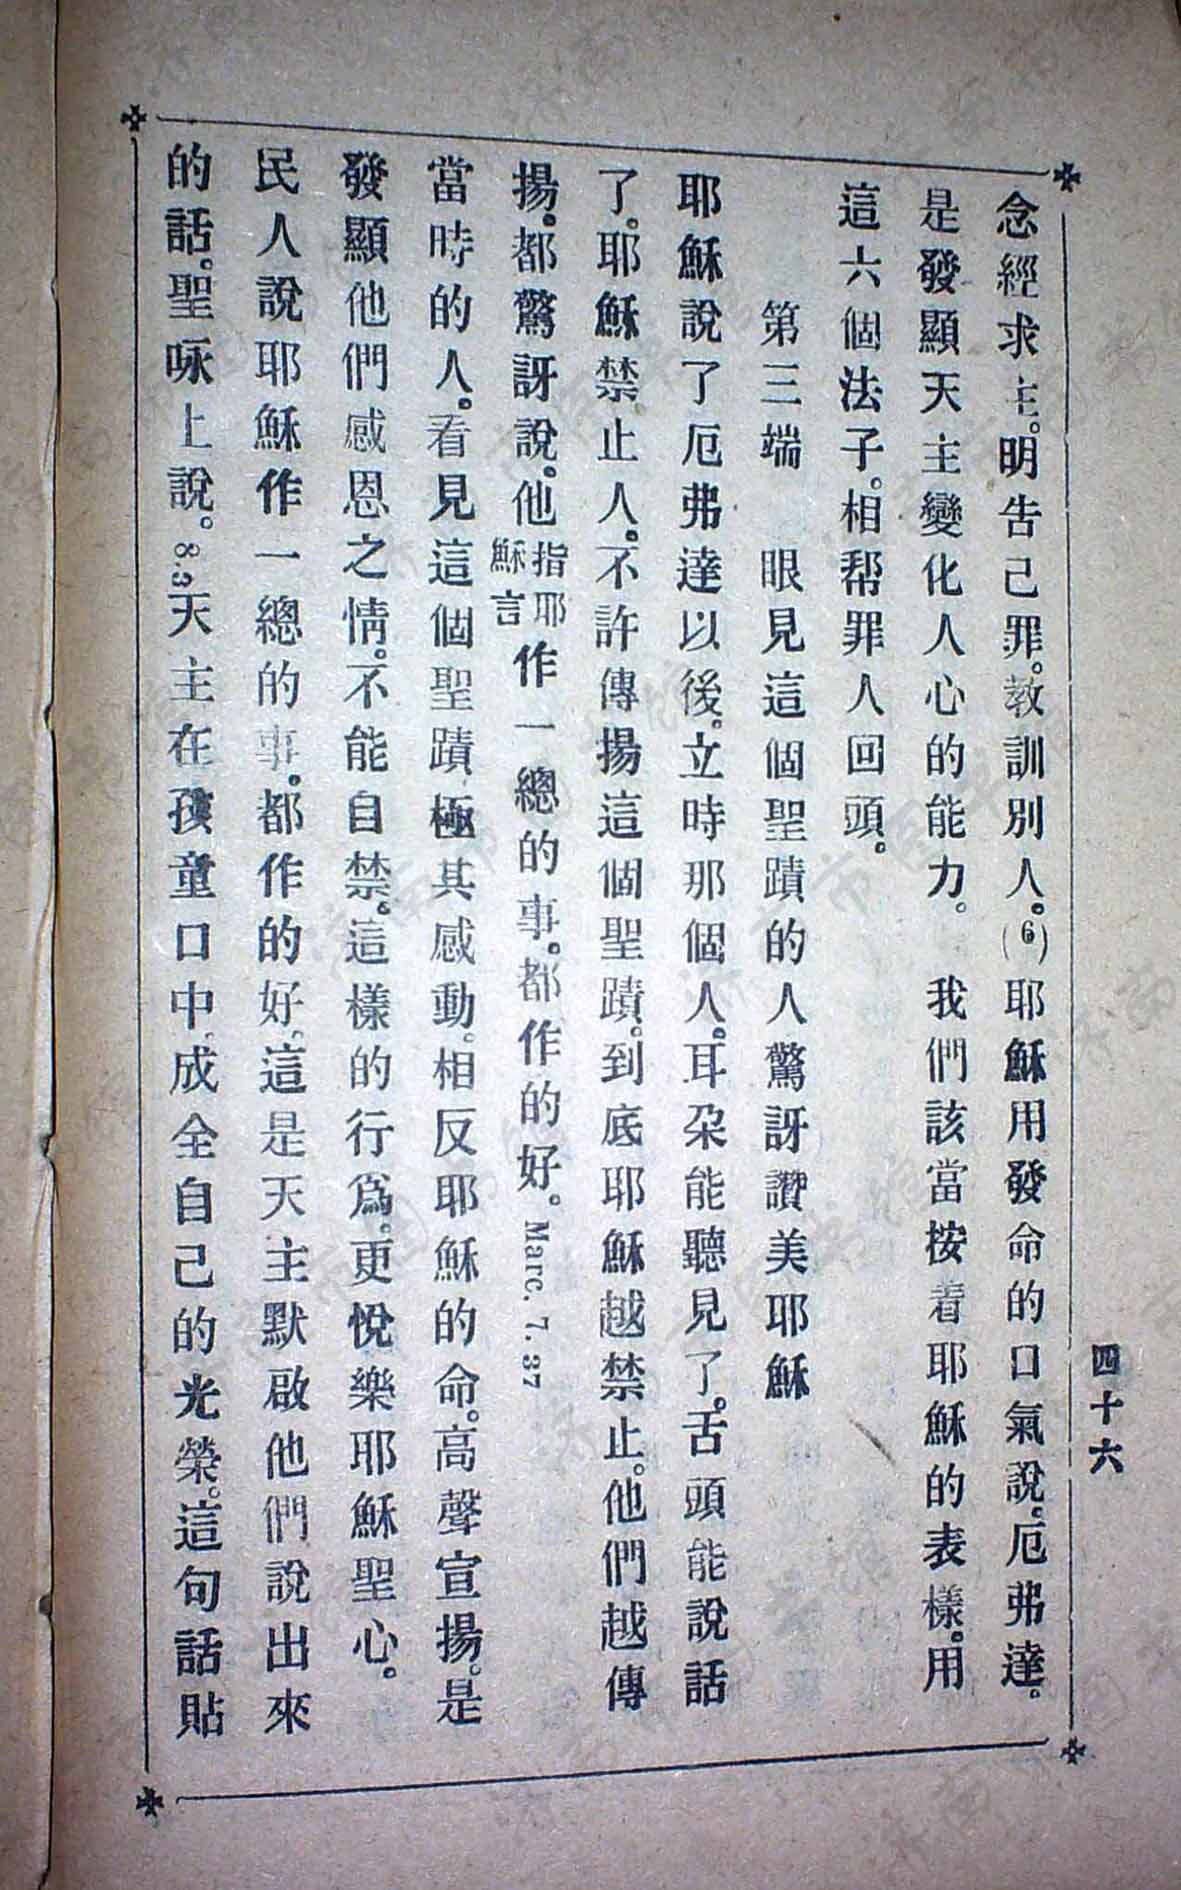 四十六
念經求主。明告己罪。教訓別人。(6)耶穌用發命的口氣說。厄弗達。
是發顯天主變化人心的能力。　我們該當按着耶穌的表樣。用
這六個法子。相帮罪人回頭。
第三端　眼見這個聖蹟的人驚訝讚美耶穌
耶穌說了厄弗達以後。立時那個人。耳朶能聽見了。舌頭能說話
了。耶穌禁止人。不許傳揚這個聖蹟。到底耶穌越禁止。他們越傳
揚。都驚訝說。他指耶穌言作一總的事。都作的好。Marc. 7. 37
當時的人。看見這個聖蹟、極其感動。相反耶穌的命。高聲宣揚。是
發顯他們感恩之情。不能自禁。這樣的行爲。更悅樂耶穌聖心。
民人說耶穌作一總的事。都作的好。這是天主默啟他們說出來
的話。聖咏上說。8.3天主在孩童口中。成全自己的光榮。這句話貼